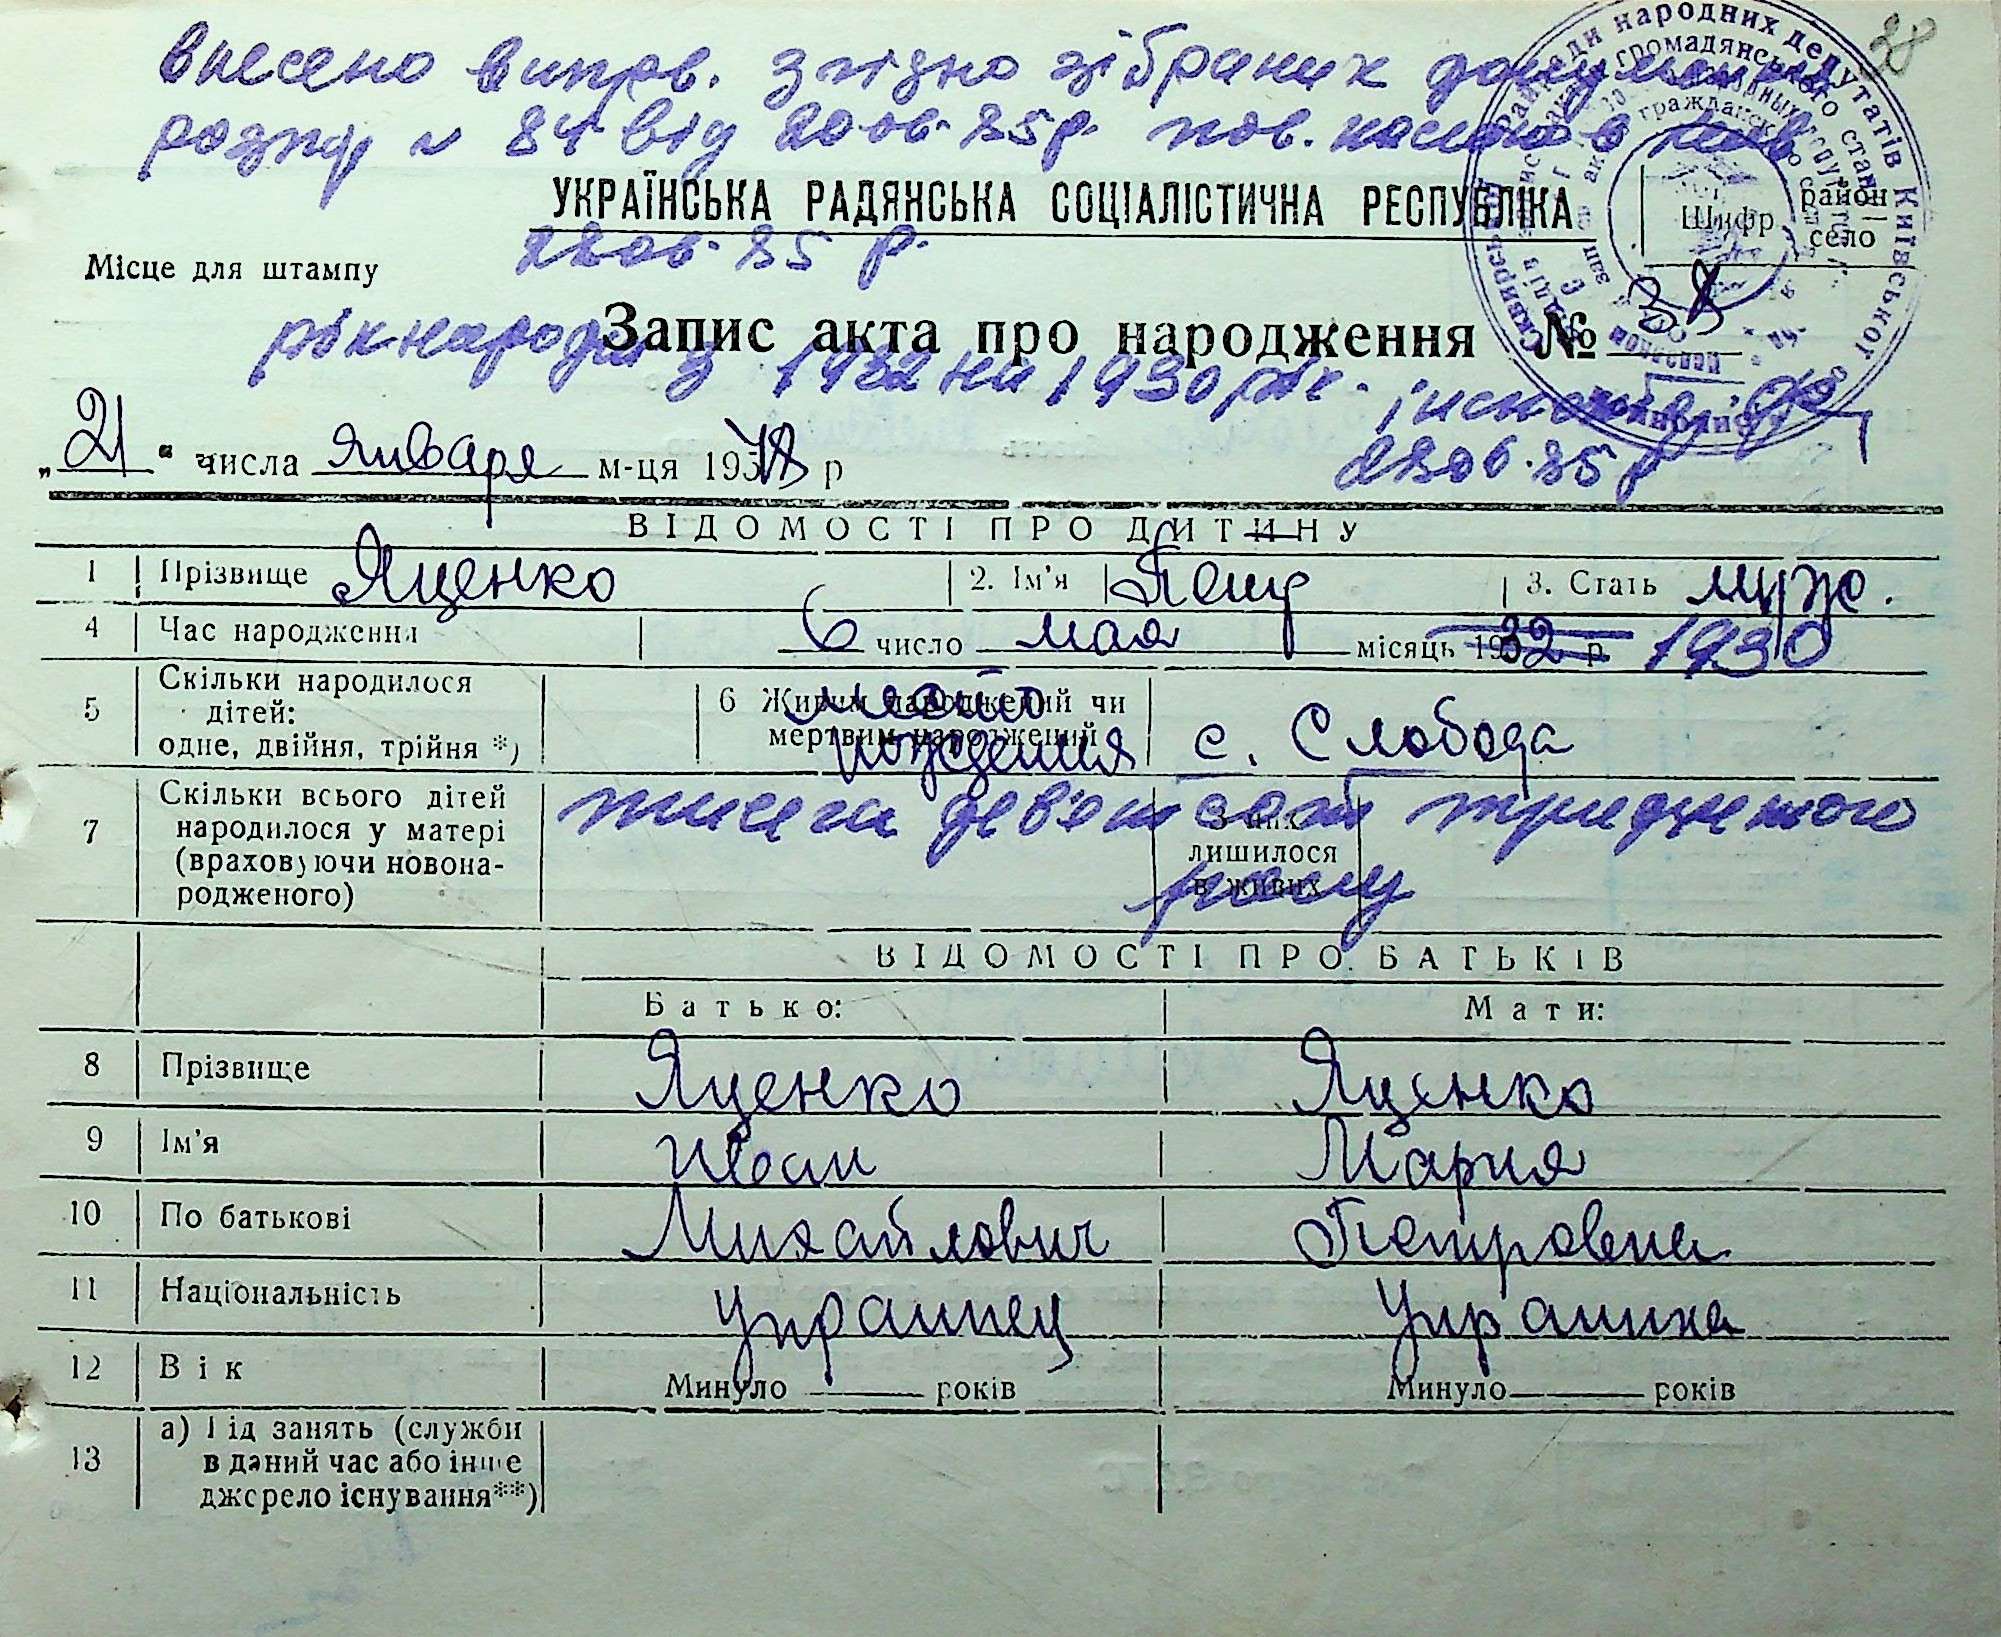 38
внесено випрв. згідно зібраних документів
розпор № 84 від 20 06. 85р. пов.
УКРАЇНСЬКА РАДЯНСЬКА СОЦІАЛІСТИЧНА РЕСПУБЛІКА
Шифр район село
2206. 85 р.
Місце для штампу
Запис акта про народження № 38
рік народж з 1932 на 1930 рік.
2206. 85 р
„21“ числа января м-ця 1978 р
ВІДОМОСТІ ПРО ДИТИНУ
1 Прізвище Яценко 2. Ім'я 3. Стать муж.
4 Час народження 6 число мая місяць 1932 р. 1930
5 Скільки народилося дітей: одне, двійня, трійня *) 6 Живим народжений чи мертвим народжений место рождения с. Слобода
7 Скільки всього дітей народилося у матері (враховуючи новонародженого) З них лишилося в живих
тисяча дев'ятсот тридцятого
року
ВІДОМОСТІ ПРО БАТЬКІВ
Батько: Мати:
8 Прізвище Яценко Яценко
9 Ім'я Иван Мария
10 По батькові Михайлович Петровна
11 Національність украинец украинка
12 Вік Минуло — років Минуло — років
13 а) Рід занять (служби
в даний час або інше
джерело існування**)